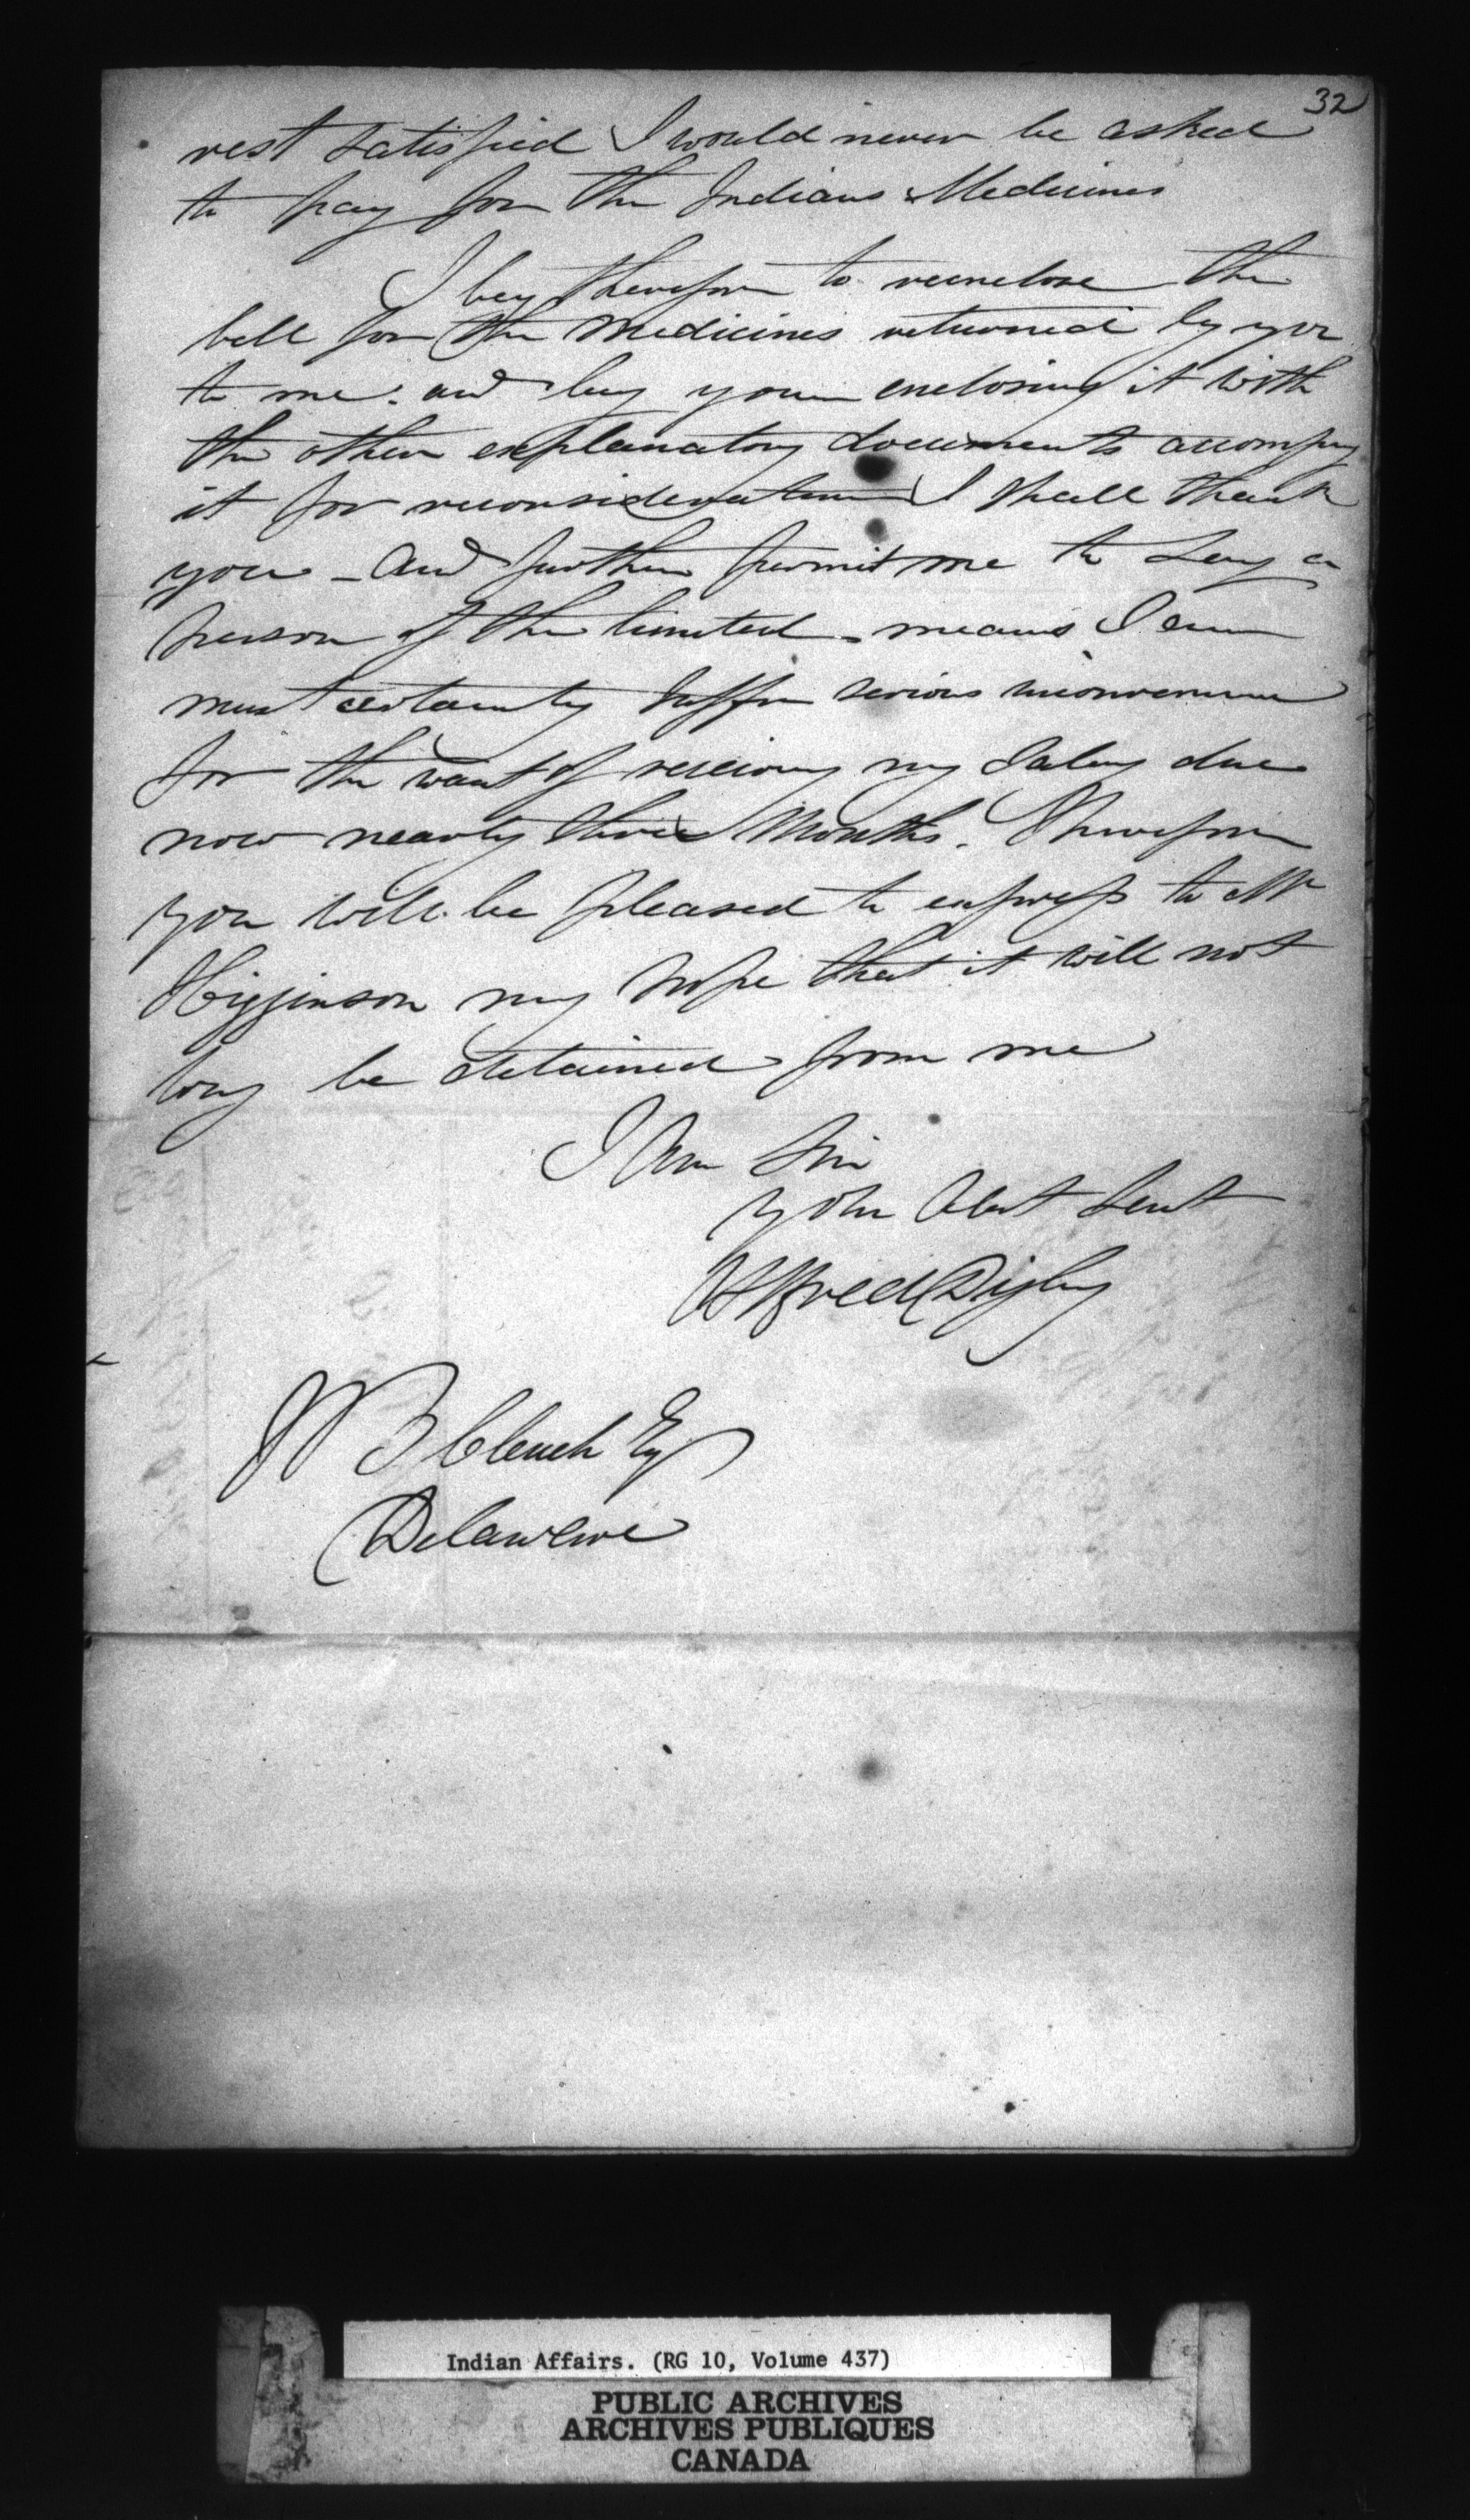 32
rest satisfied I would never be asked
to pay for the Indians Medicines
I beg therefore to reenclose the
bill for the Medicines returned by you
to me. and beg your enclosing it with
the other explanatory documents accompy
it for reconsideration I shall thank
you - and further permit me to say a
person of the limited means I am
must certainly suffer serious inconvenience
for the want of receiving my Salary due
now nearly three Months. Therefore
you will be pleased to express to Mr
Higginson my hope that it will not
long be detained from me
I Am Sir
your Obt Servt
Alfred Digby
J B Clench Esq
Delaware
Indian Affairs. (RG 10, Volume 437)
PUBLIC ARCHIVES
ARCHIVES PUBLIQUES
CANADA